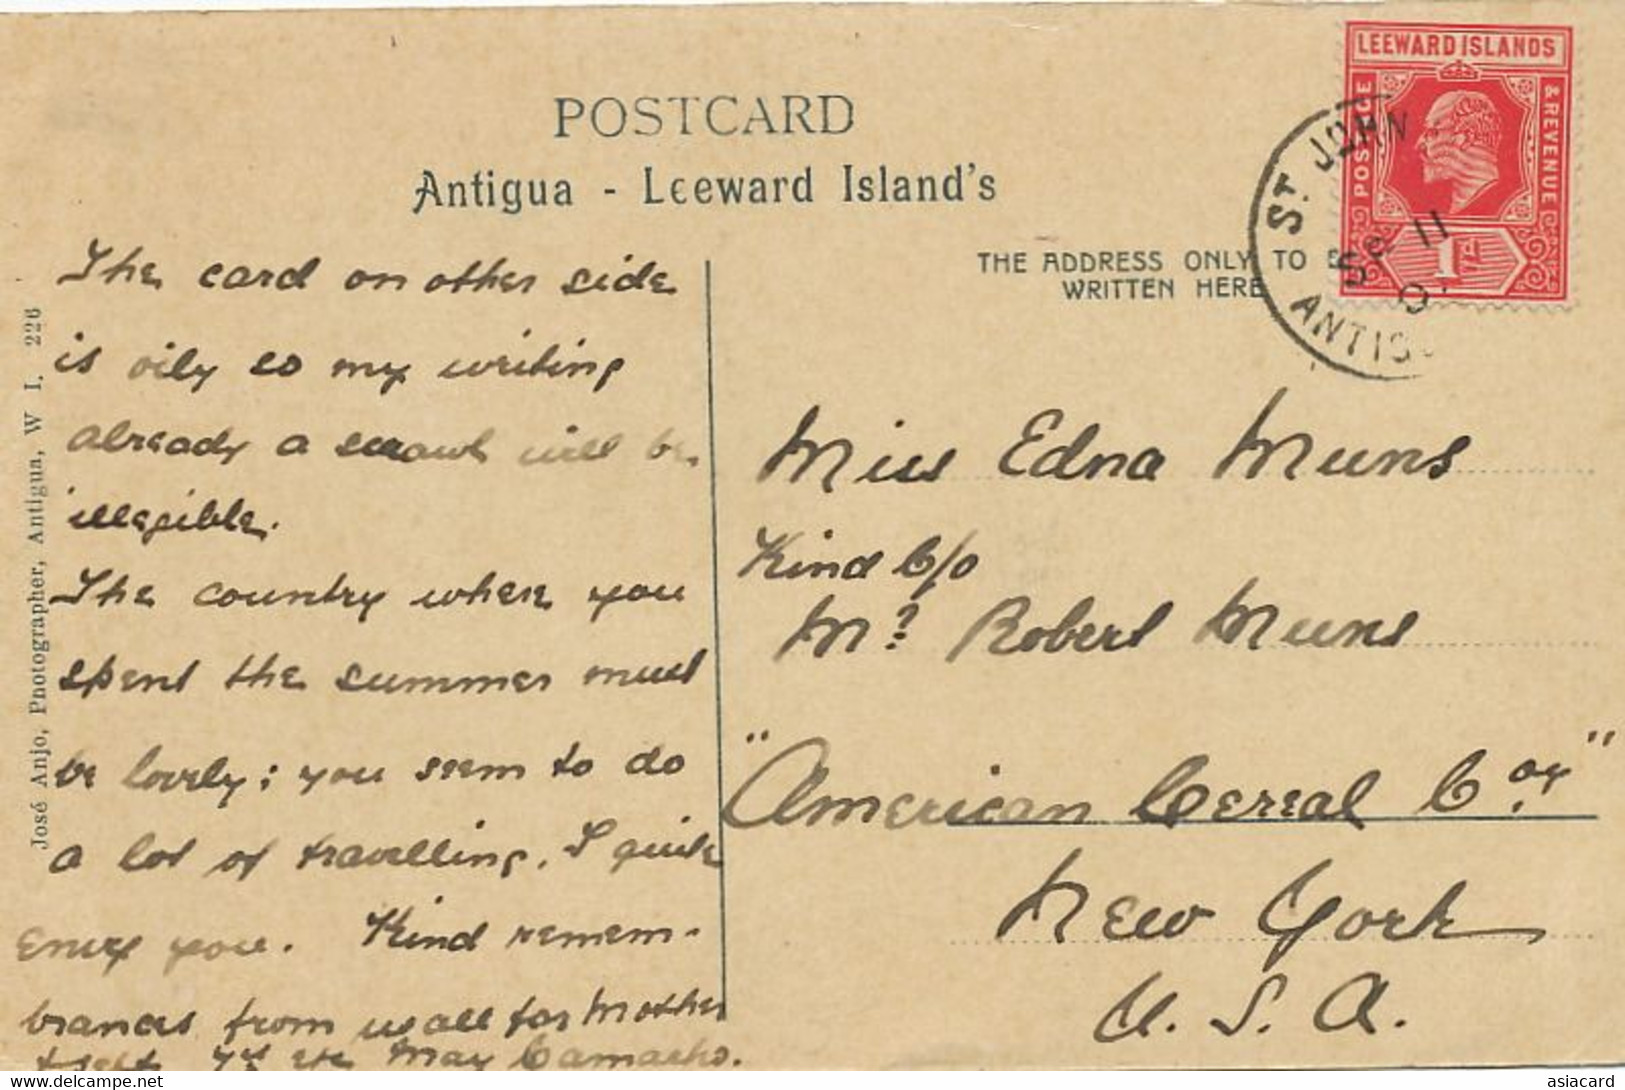 POSTCARD
Antigua - Leeward Island's
THE ADDRESS ONLY TO
WRITTEN HERE
LEEWARD ISLANDS
POSTAGE
& REVENUE
1d
ST. JOHN
SP 11
ANTIGU
José Anjo, Photographer, Antigua, W I. 226
The card on other side
is oily so my writing
already a scrawl will be
illegible.
The country where you
spent the summer must
be lovely; you seem to do
a lot of travelling. I quite
envy you. Kind remem-
brances from us all for Mother
May Camacho.
Miss Edna Muns
Kind C/o
Mr. Robert Muns
"American Cereal Coy."
New York
U. S. A.
delcampe.net
asiacard